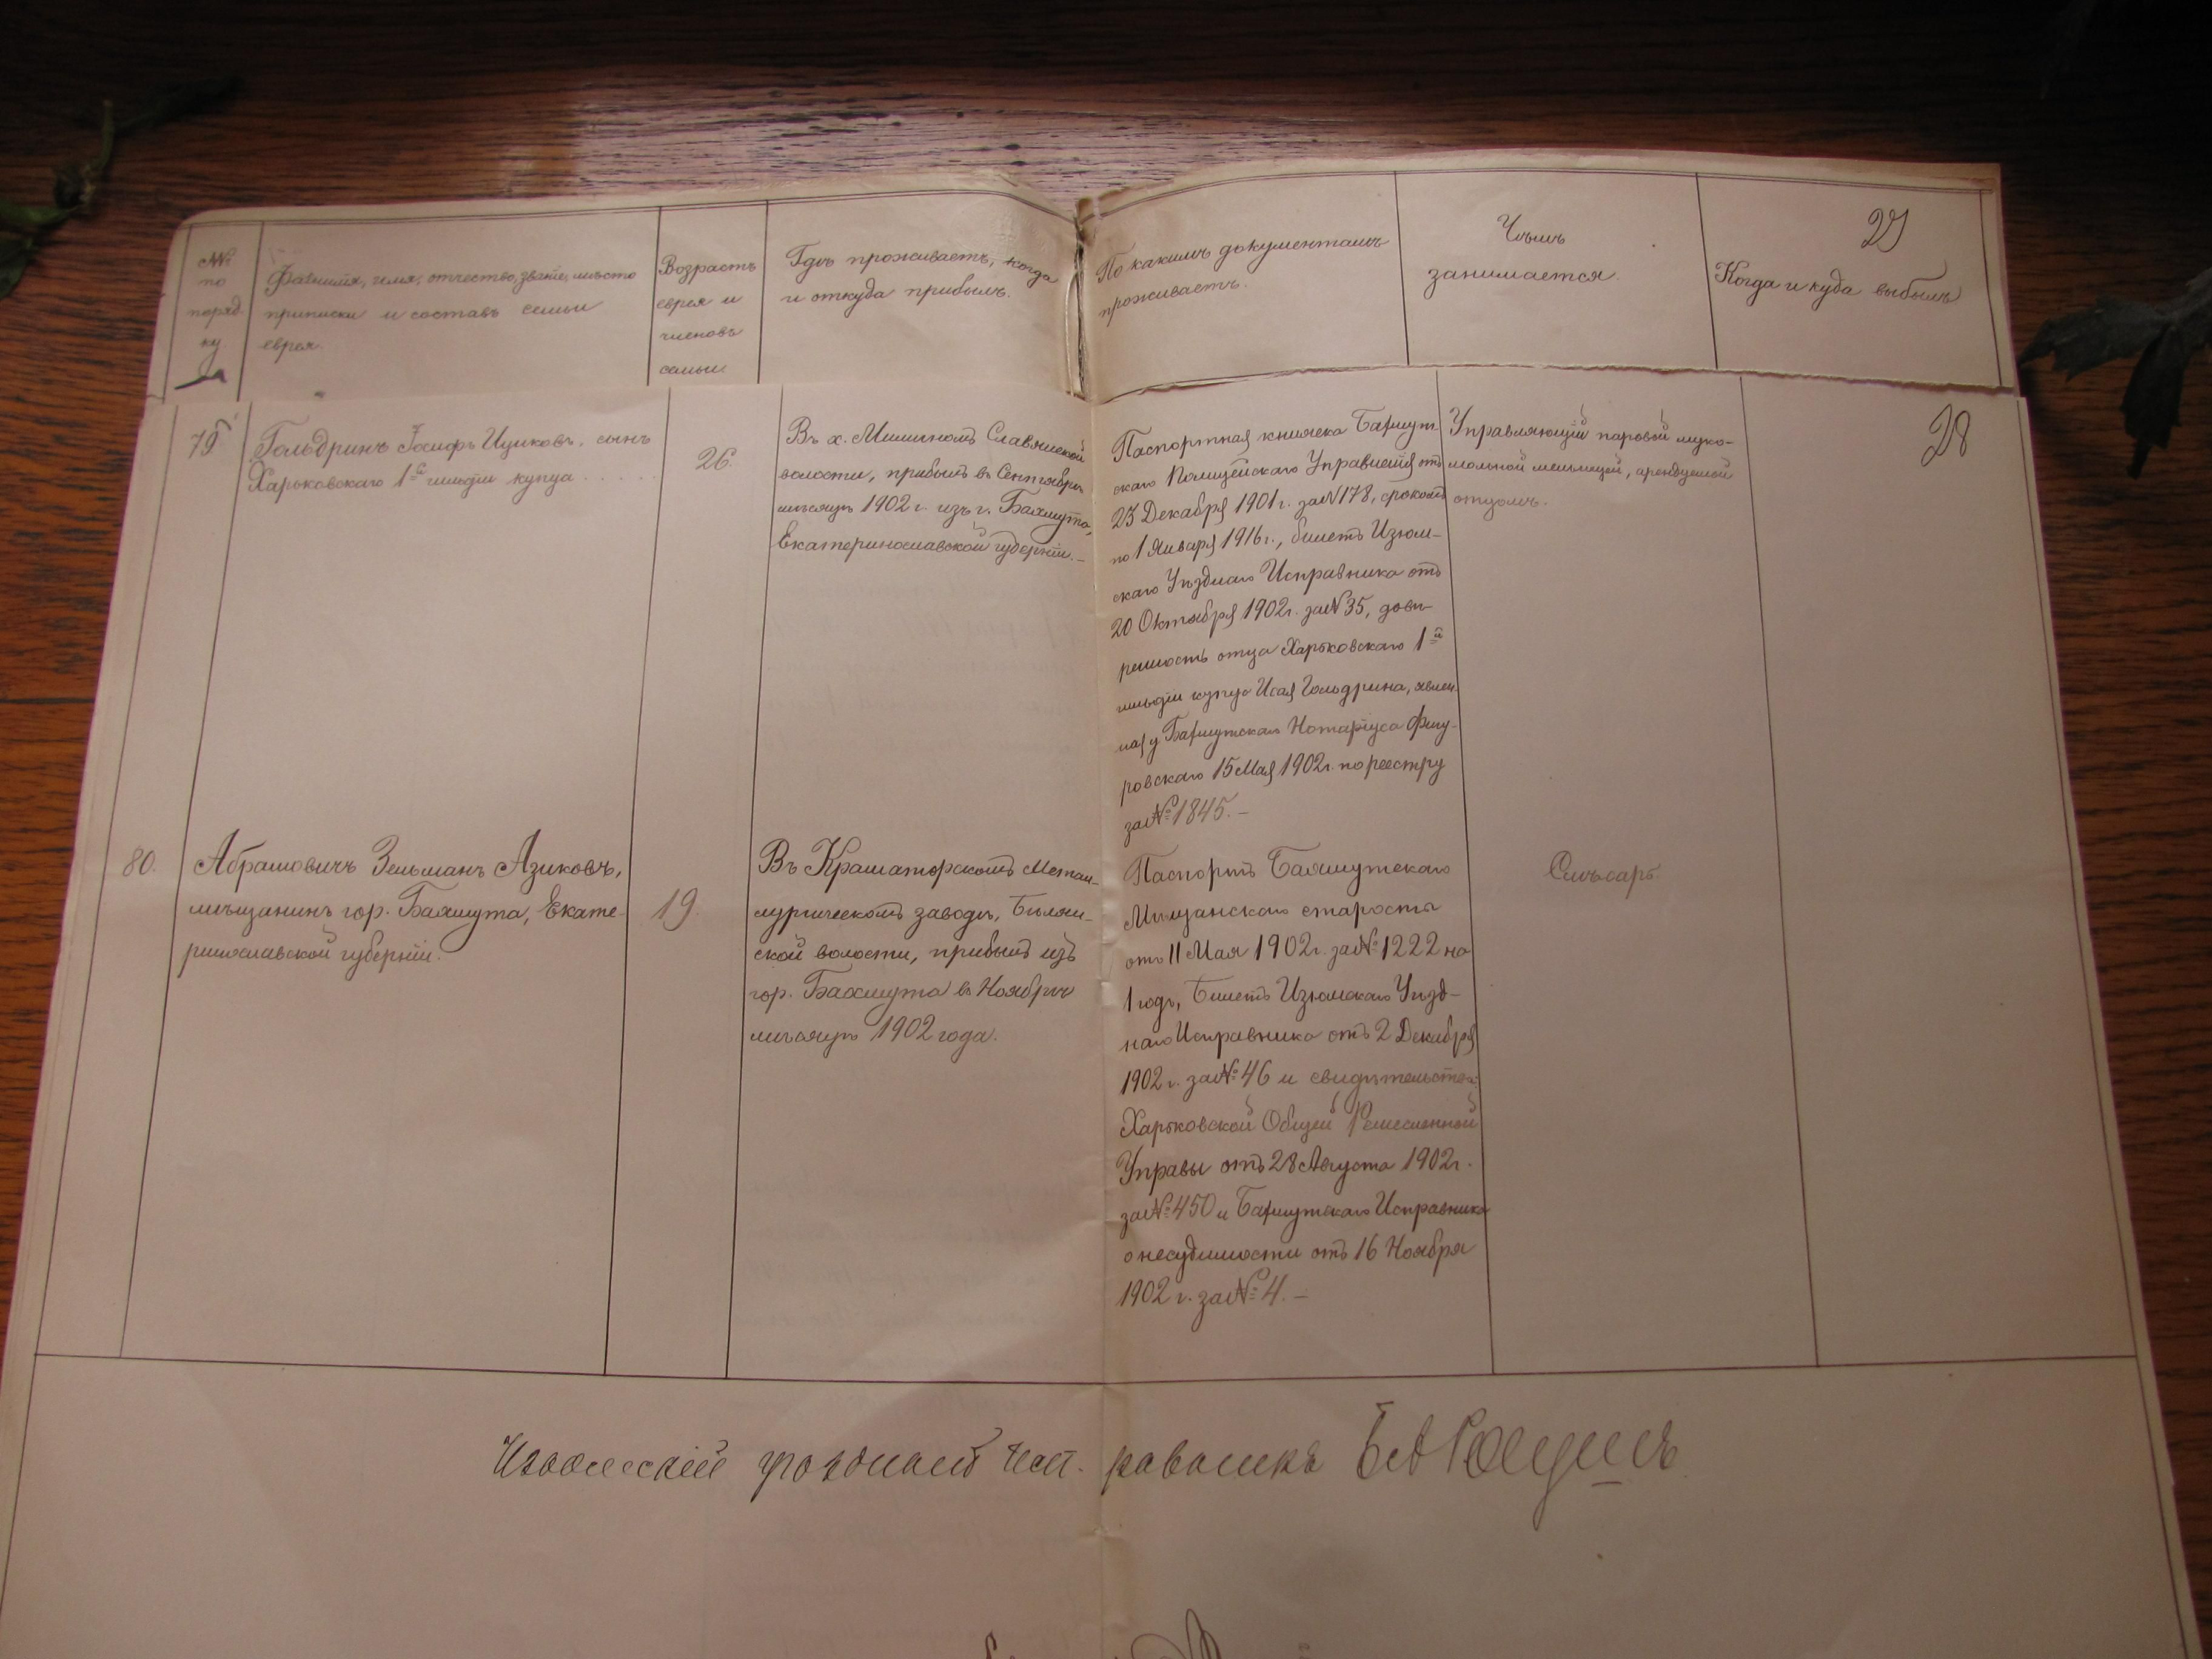 №№
по
поряд
ку
Фамилія, имя, отчество, званіе, мѣсто
приписки и составъ семьи
еврея.
Возрастъ
еврея и
членовъ
семьи
Гдѣ проживаетъ, когда
и откуда прибылъ.
По какимъ документамъ
проживаетъ.
Чѣмъ
занимается.
27
Когда и куда выбылъ
79
Гольдринъ Іосифъ Ициковъ, сынъ
Харьковскаго 1й гильдіи купца . . . . .
26.
Въ х. Славянской
волости, прибылъ въ Сентябрѣ
мѣсяцѣ 1902 г. изъ г. Бахмута,
Екатеринославской губерніи. –
Паспортная книжка Бахмут-
скаго Полицейскаго Управленія отъ
23 Декабря 1901 г. за № 178, срокомъ
по 1 Января 1916 г., билетъ Изюм-
скаго Уѣзднаго Исправника отъ
20 Октября 1902 г. за № 35, довѣ-
ренность отца Харьковскаго 1й
гильдіи купца Исая Гольдрина, явлен.
ная у Бахмутскаго Нотаріуса Фигу-
ровскаго 15 Мая 1902 г. по реестру
за № 1845. –
Управляющій паровой муко-
мольной мельницей, арендуемой
отцомъ.
28
80.
Абрамовичъ Зельманъ Азиковъ,
мѣщанинъ гор. Бахмута, Екате-
ринославской губерніи.
19.
Въ Краматорскомъ Метал-
лургическомъ заводѣ, Бѣлян-
ской волости, прибылъ изъ
гор. Бахмута въ Ноябрѣ
мѣсяцѣ 1902 года.
Паспортъ Бахмутскаго
Мѣщанскаго старосты
отъ 11 Мая 1902 г. за № 1222 на
1 годъ, Билетъ Изюмскаго Уѣзд-
наго Исправника отъ 2 Декабря
1902 г. за № 46 и свидѣтельства:
Харьковской Общей Ремесленной
Управы отъ 28 Августа 1902 г.
за № 450 и Бахмутскаго Исправника
о несудимости отъ 16 Ноября
1902 г. за № 4. –
Слѣсарь.
Изюмскій уѣздный Исправникъ